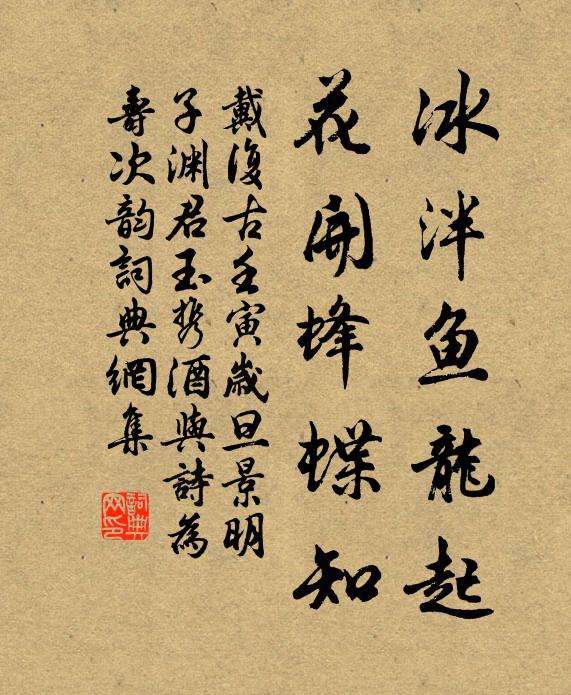 冰泮鱼龍起
花開蜂蝶知
戴復古壬寅歲旦景明
子渊君玉携酒與詩為
壽次韵詞典網集
詞典
网印